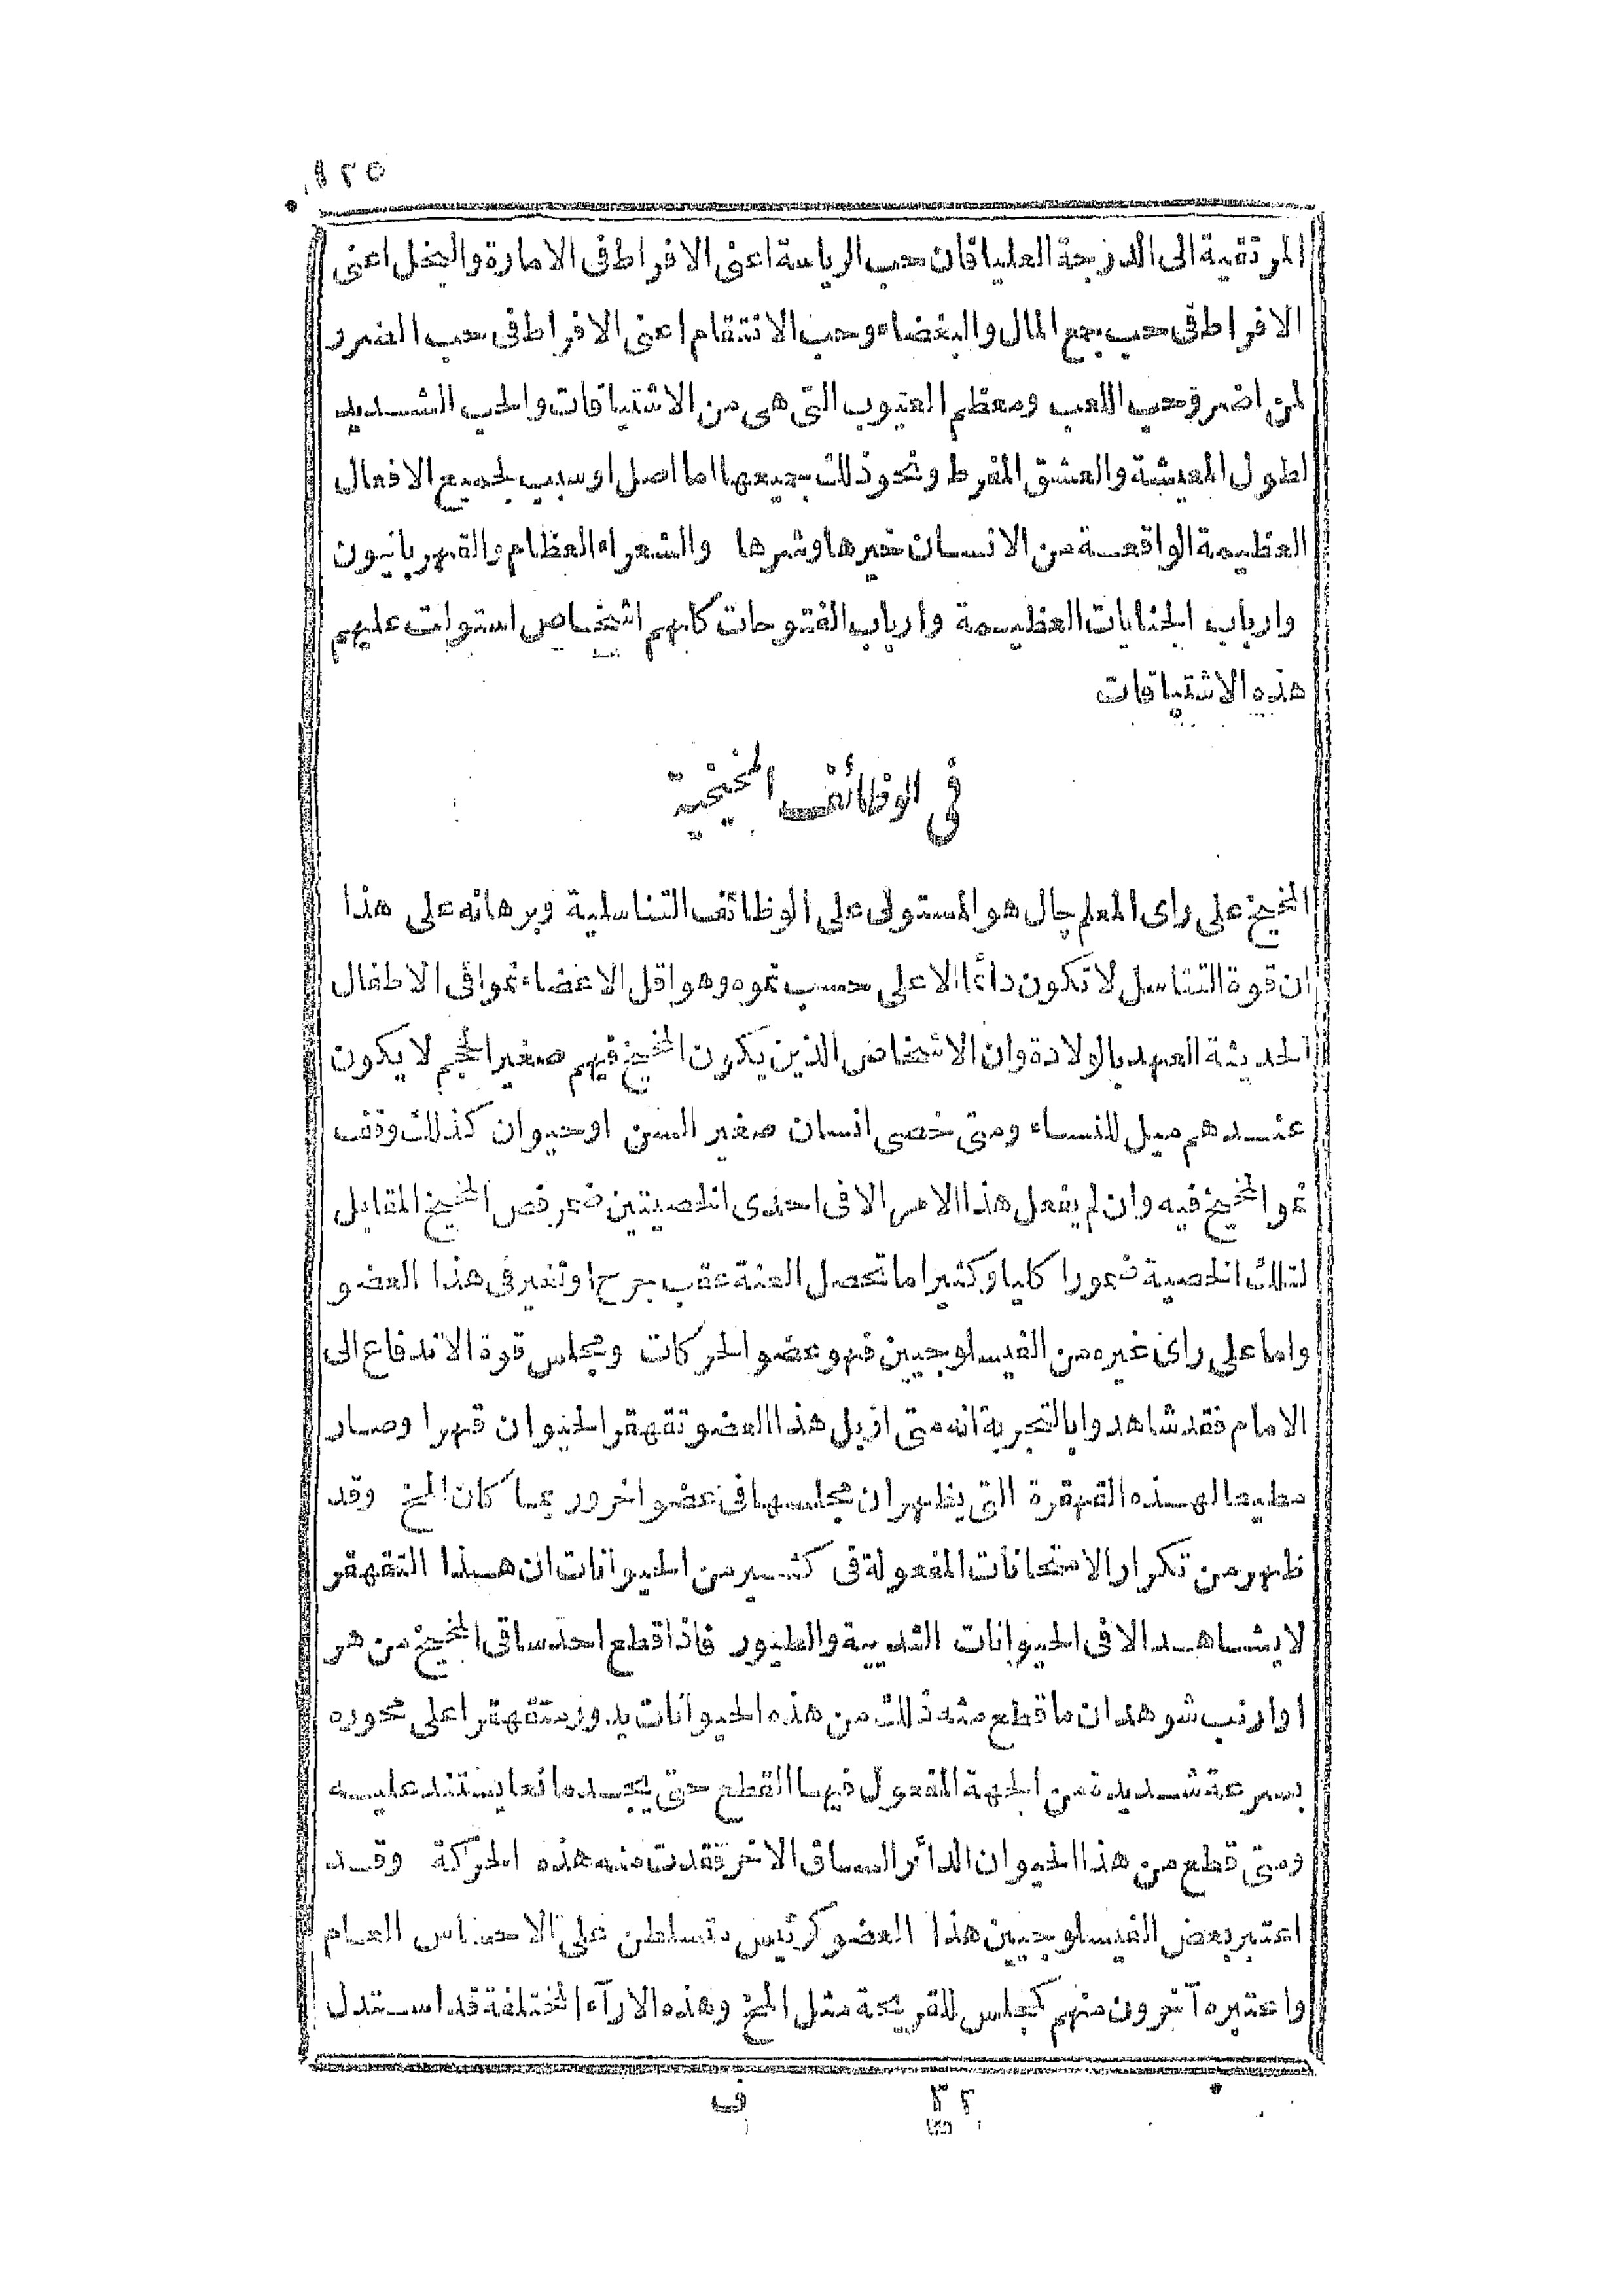 ١٢٥
المرتقية الى الدرجة العليا فان حب الرياسة اعنى الافراط فى الامارة والبخل اعنى
الافراط فى حب جمع المال والبغضاء وحب الانتقام اعنى الافراط فى حب الضرر
لمن اضر وحب اللعب ومعظم العيوب التى هى من الاشتياقات والحب الشديد
لطول المعيشة والعشق المفرط ونحو ذلك جميعها اما اصل او سبب لجميع الافعال
العظيمة الواقعة من الانسان خيرها وشرها والشعراء العظام والقهربانيون
وارباب الجنايات العظيمة وارباب الفتوحات كلهم اشخاص استولت عليهم
هذه الاشتياقات
فى الوظائف المخيخية
المخيخ على راى المعلم جال هو المستولى على الوظائف التناسلية وبرهانه على هذا
ان قوة التناسل لا تكون دائما الا على حسب نموه وهو اقل الاعضاء نموا فى الاطفال
الحديثة العهد بالولادة وان الاشخاص الذين يكون المخيخ فيهم صغير الحجم لا يكون
عندهم ميل للنساء ومتى خصى انسان صغير السن او حيوان كذلك وقف
نمو المخيخ فيه وان لم يفعل هذا الامر الا فى احدى الخصيتين ضمر فص المخيخ المقابل
لتلك الخصية ضمورا كليا وكثيرا ما تحصل العنة عقب جرح او تغير فى هذا العضو
واما على راى غيره من الفيسلوجيين فهو عضو الحركات ومجلس قوة الاندفاع الى
الامام فقد شاهدوا بالتجربة انه متى ازيل هذا العضو تقهقر الحيوان قهرا وصار
مطيعا لهذه القهقرة التى يظهر ان مجلسها فى عضو اخر وربما كان المخ وقد
ظهر من تكرار الامتحانات المفعولة فى كثير من الحيوانات ان هذا التقهقر
لا يشاهد الا فى الحيوانات الثديية والطيور فاذا قطع احد ساقى المخيخ من هر
او ارنب شوهد ان ما قطع منه ذلك من هذه الحيوانات يدور متقهقرا على محوره
بسرعة شديدة من الجهة المفعول فيها القطع حتى يجد مانعا يستند عليه
ومتى قطع من هذا الحيوان الدائر الساق الاخر فقدت منه هذه الحركة وقد
اعتبر بعض الفيسلوجيين هذا العضو كرئيس تسلطن على الاحساس العام
واعتبره آخرون منهم كمجلس للقريحة مثل المخ وهذه الاراء المختلفة قد استدل
٢٢ ف